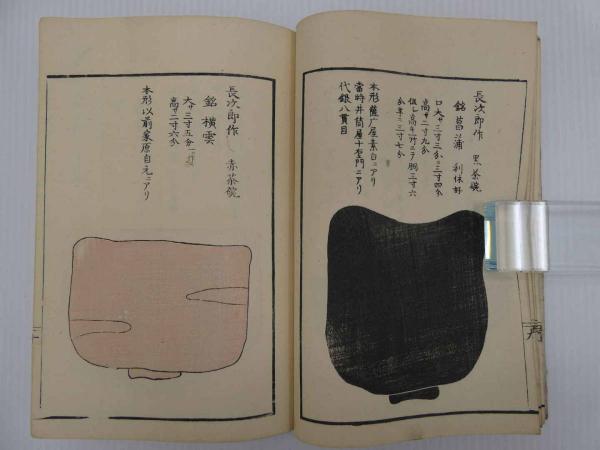 長次郎作 黒茶碗
銘 菖蒲 利休好
口大サ三寸三分ニ三寸四分
高サ二寸九分
但し高キ所ニテ胴三寸六
分ヨリ三寸七分
本形薩广屋素白ニアリ
當時井筒屋十右門ニアリ
代銀八貫目
長次郎作 赤茶碗
銘 横雲
大サ三寸五分
高サ二寸六分
本形以前家原自元ニアリ